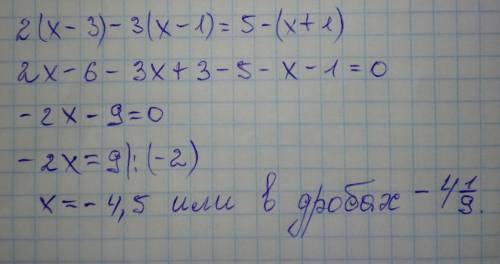 2(x-3)-3(x-1)=5-(x+1)
2x-6-3x+3-5-x-1=0
-2x-9=0
-2x=9|:(-2)
x=-4,5 или в дробах -4 1/9.